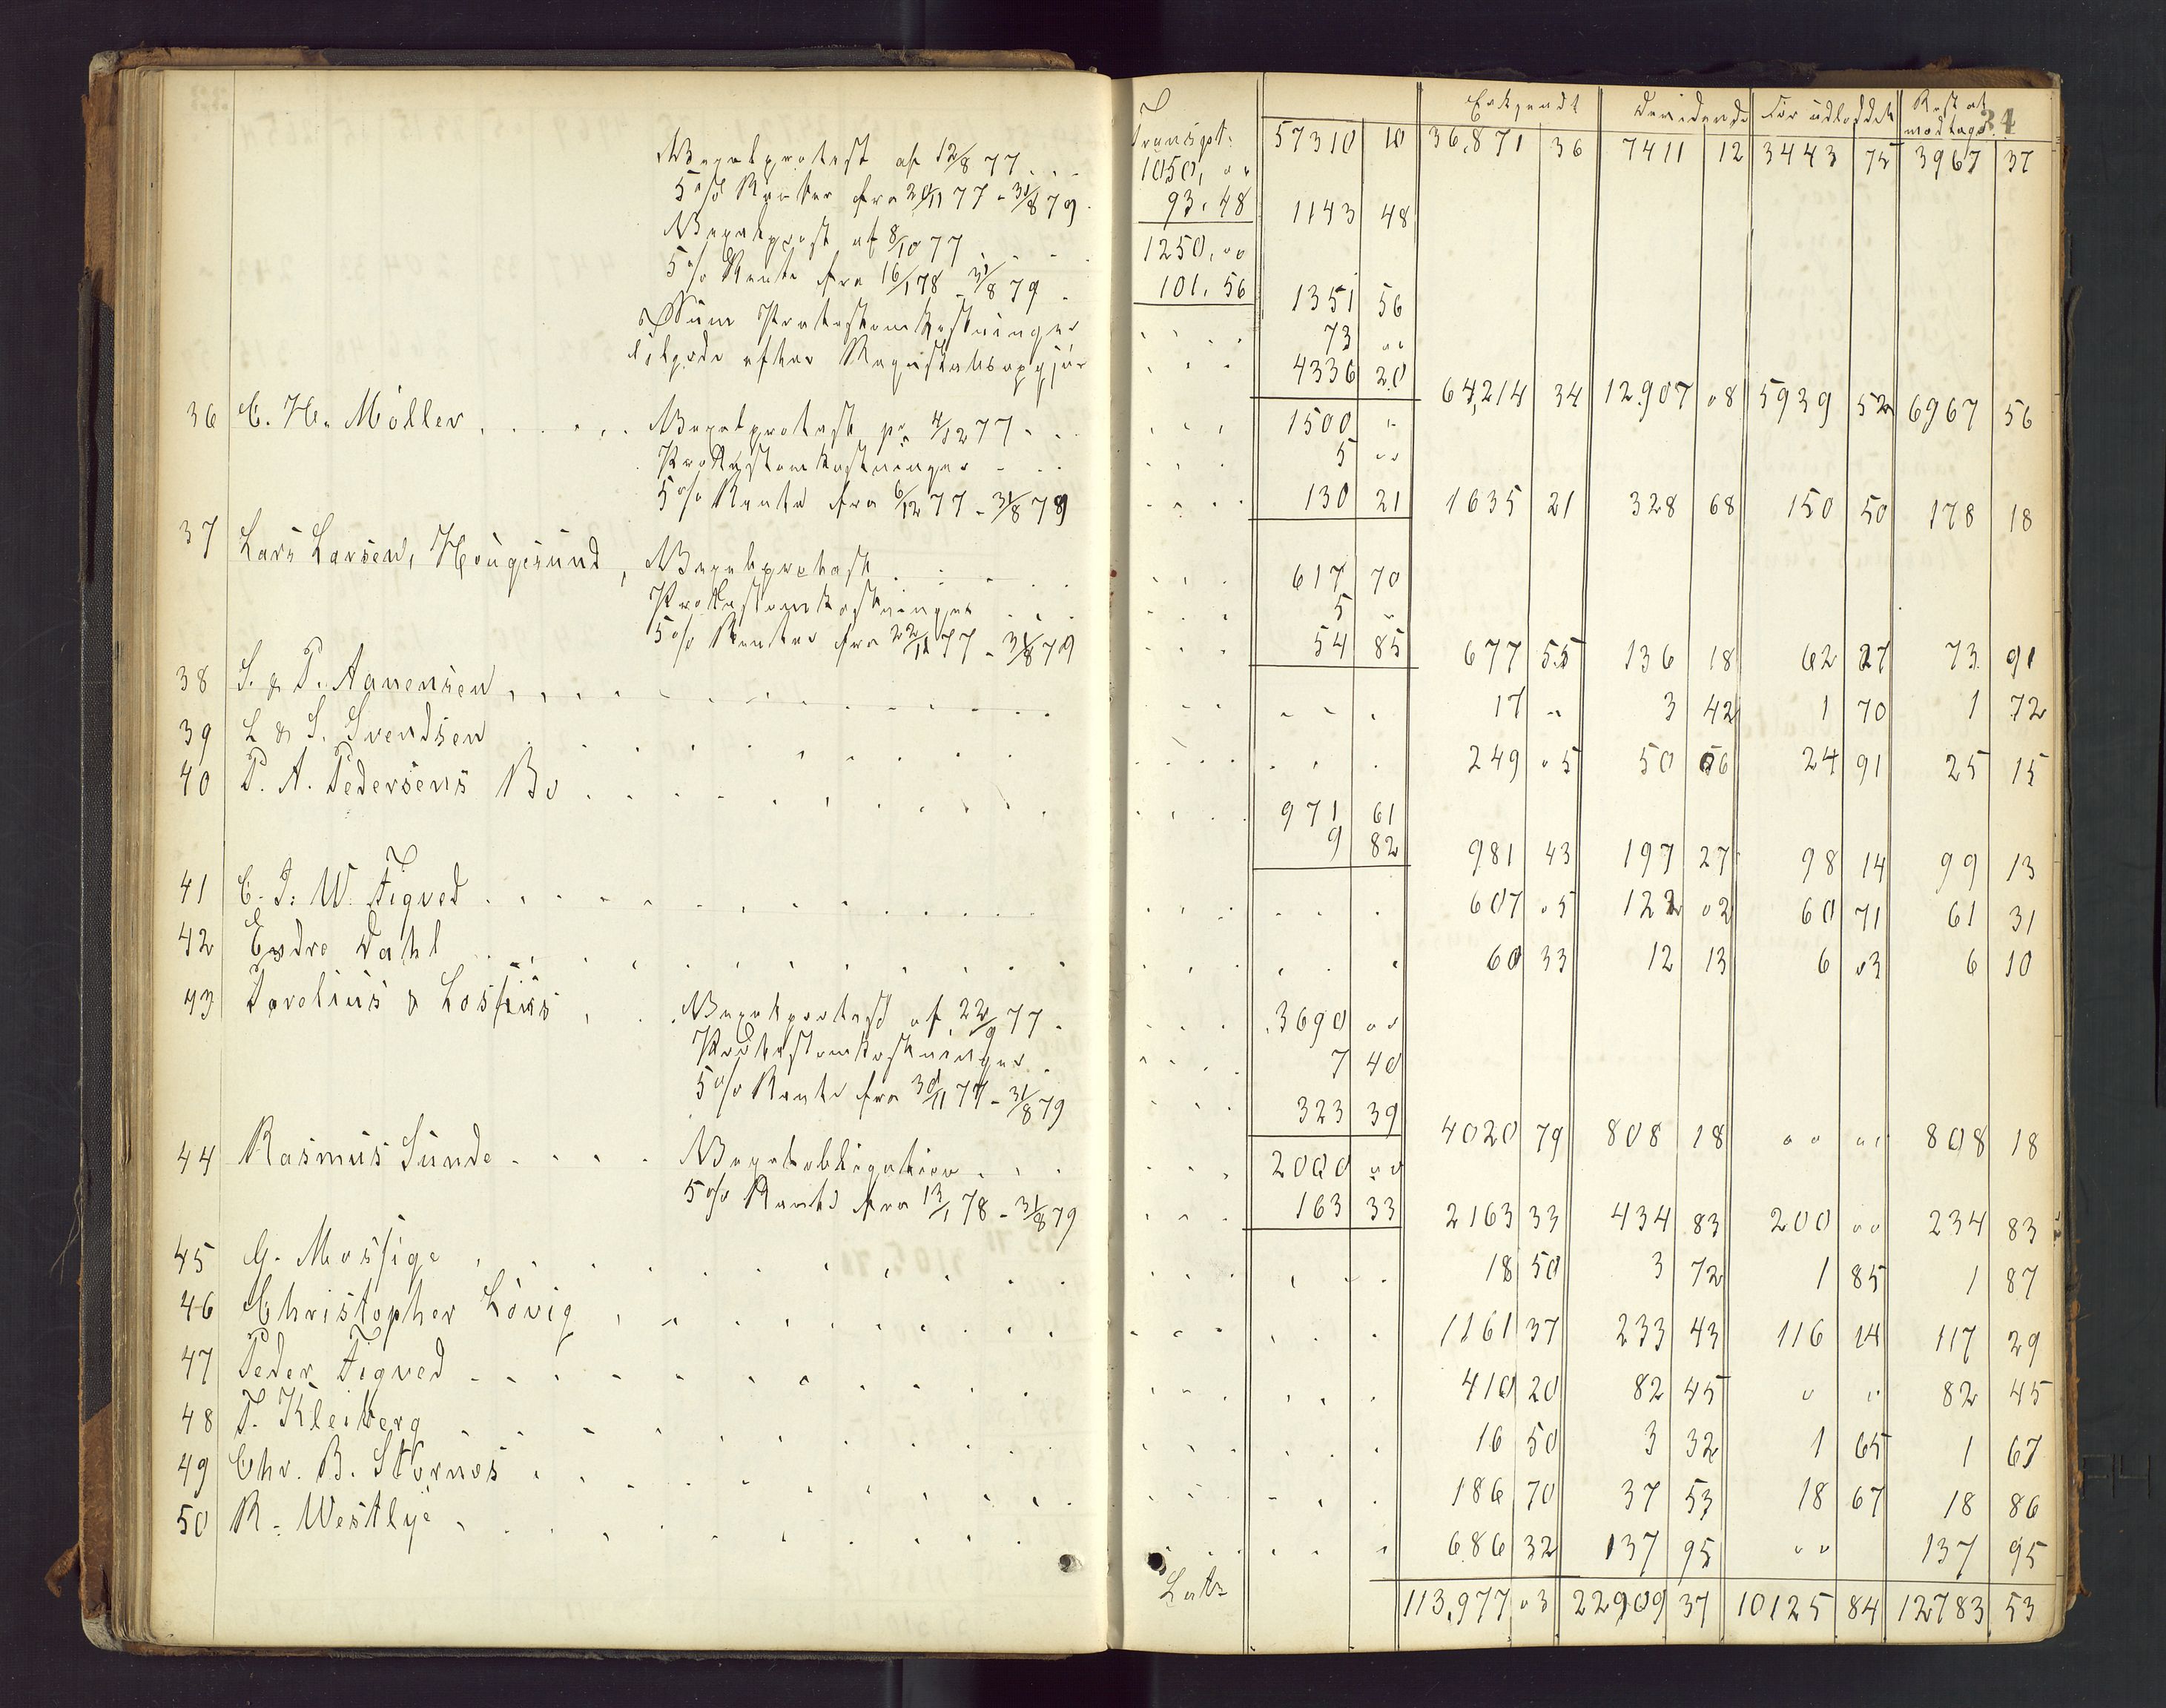 Erkjendt Dividende Før udloddet Rest at modtage 34
Transpt. 57310 10 36,871 36 7411 12 3443 75 3967 37
Vexelprotest af 12/8 77 . . . 1050, " "
5 % Renter fra 20/11 77 - 31/8 79 . 93. 48 1143 48
Vexelprotest af 8/10 77 . . . 1250, " "
5 % Rente fra 16/1 78 - 31/8 79 . 101. 56 1351 56
Protestomkostninger . . . 73 " "
efter . . . 4336 20 64,214 34 12907 08 5939 52 6967 56
36 C. H. Möller . . . . . Vexelprotest pr. 4/12 77 . . . 1500 "
Protestomkostninger . . . 5 " "
5 % Rente fra 6/12 77 - 31/8 79 . . . 130 21 1635 21 328 68 150 50 178 18
37 Lars Larsen, Hougesund, Vexelprotest . . . 617 70
Protestomkostninger . . . 5 "
5 % Renter fra 22/11 77 - 31/8 79 . . . 54 85 677 55 136 18 62 27 73 91
38 S. & T. Aanensen . . . . . 17 " 3 42 1 70 1 72
39 L & S. Svendsen . . . . . 249 05 50 06 24 91 25 15
40 P. A. Pedersens Bo . . . . . 971 61
9 82 981 43 197 27 98 14 99 13
41 C. I. W. Tiqved . . . . . 607 05 122 02 60 71 61 31
42 Endre Dahl . . . . . 60 33 12 13 6 03 6 10
43 & Lossius . . Vexelprotest af 22/9 77 . . . 3690 " "
Protestomkostninger . . . 7 40
5 % Rente fra 30/11 77 - 31/8 79 . . . 323 39 4020 79 808 18 " " " " 808 18
44 Rasmus Sunde . . . . Vexelobligation . . . 2000 " "
5 % Rente fra 13/1 78 - 31/8 79 . . . 163 33 2163 33 434 83 200 " " 234 83
45 G. Mossige . . . . . 18 50 3 72 1 85 1 87
46 Christopher Lövig . . . . . 1161 37 233 43 116 14 117 29
47 Peder Tiqved . . . . . 410 20 82 45 " " 82 45
48 T. Kleiberg . . . . . 16 50 3 32 1 65 1 67
49 Chr. B. Stornæs . . . . . 186 70 37 53 18 67 18 86
50 R. Westlye . . . . . 686 32 137 95 " " 137 95
Latr. 113,977 03 22909 37 10125 84 12783 53